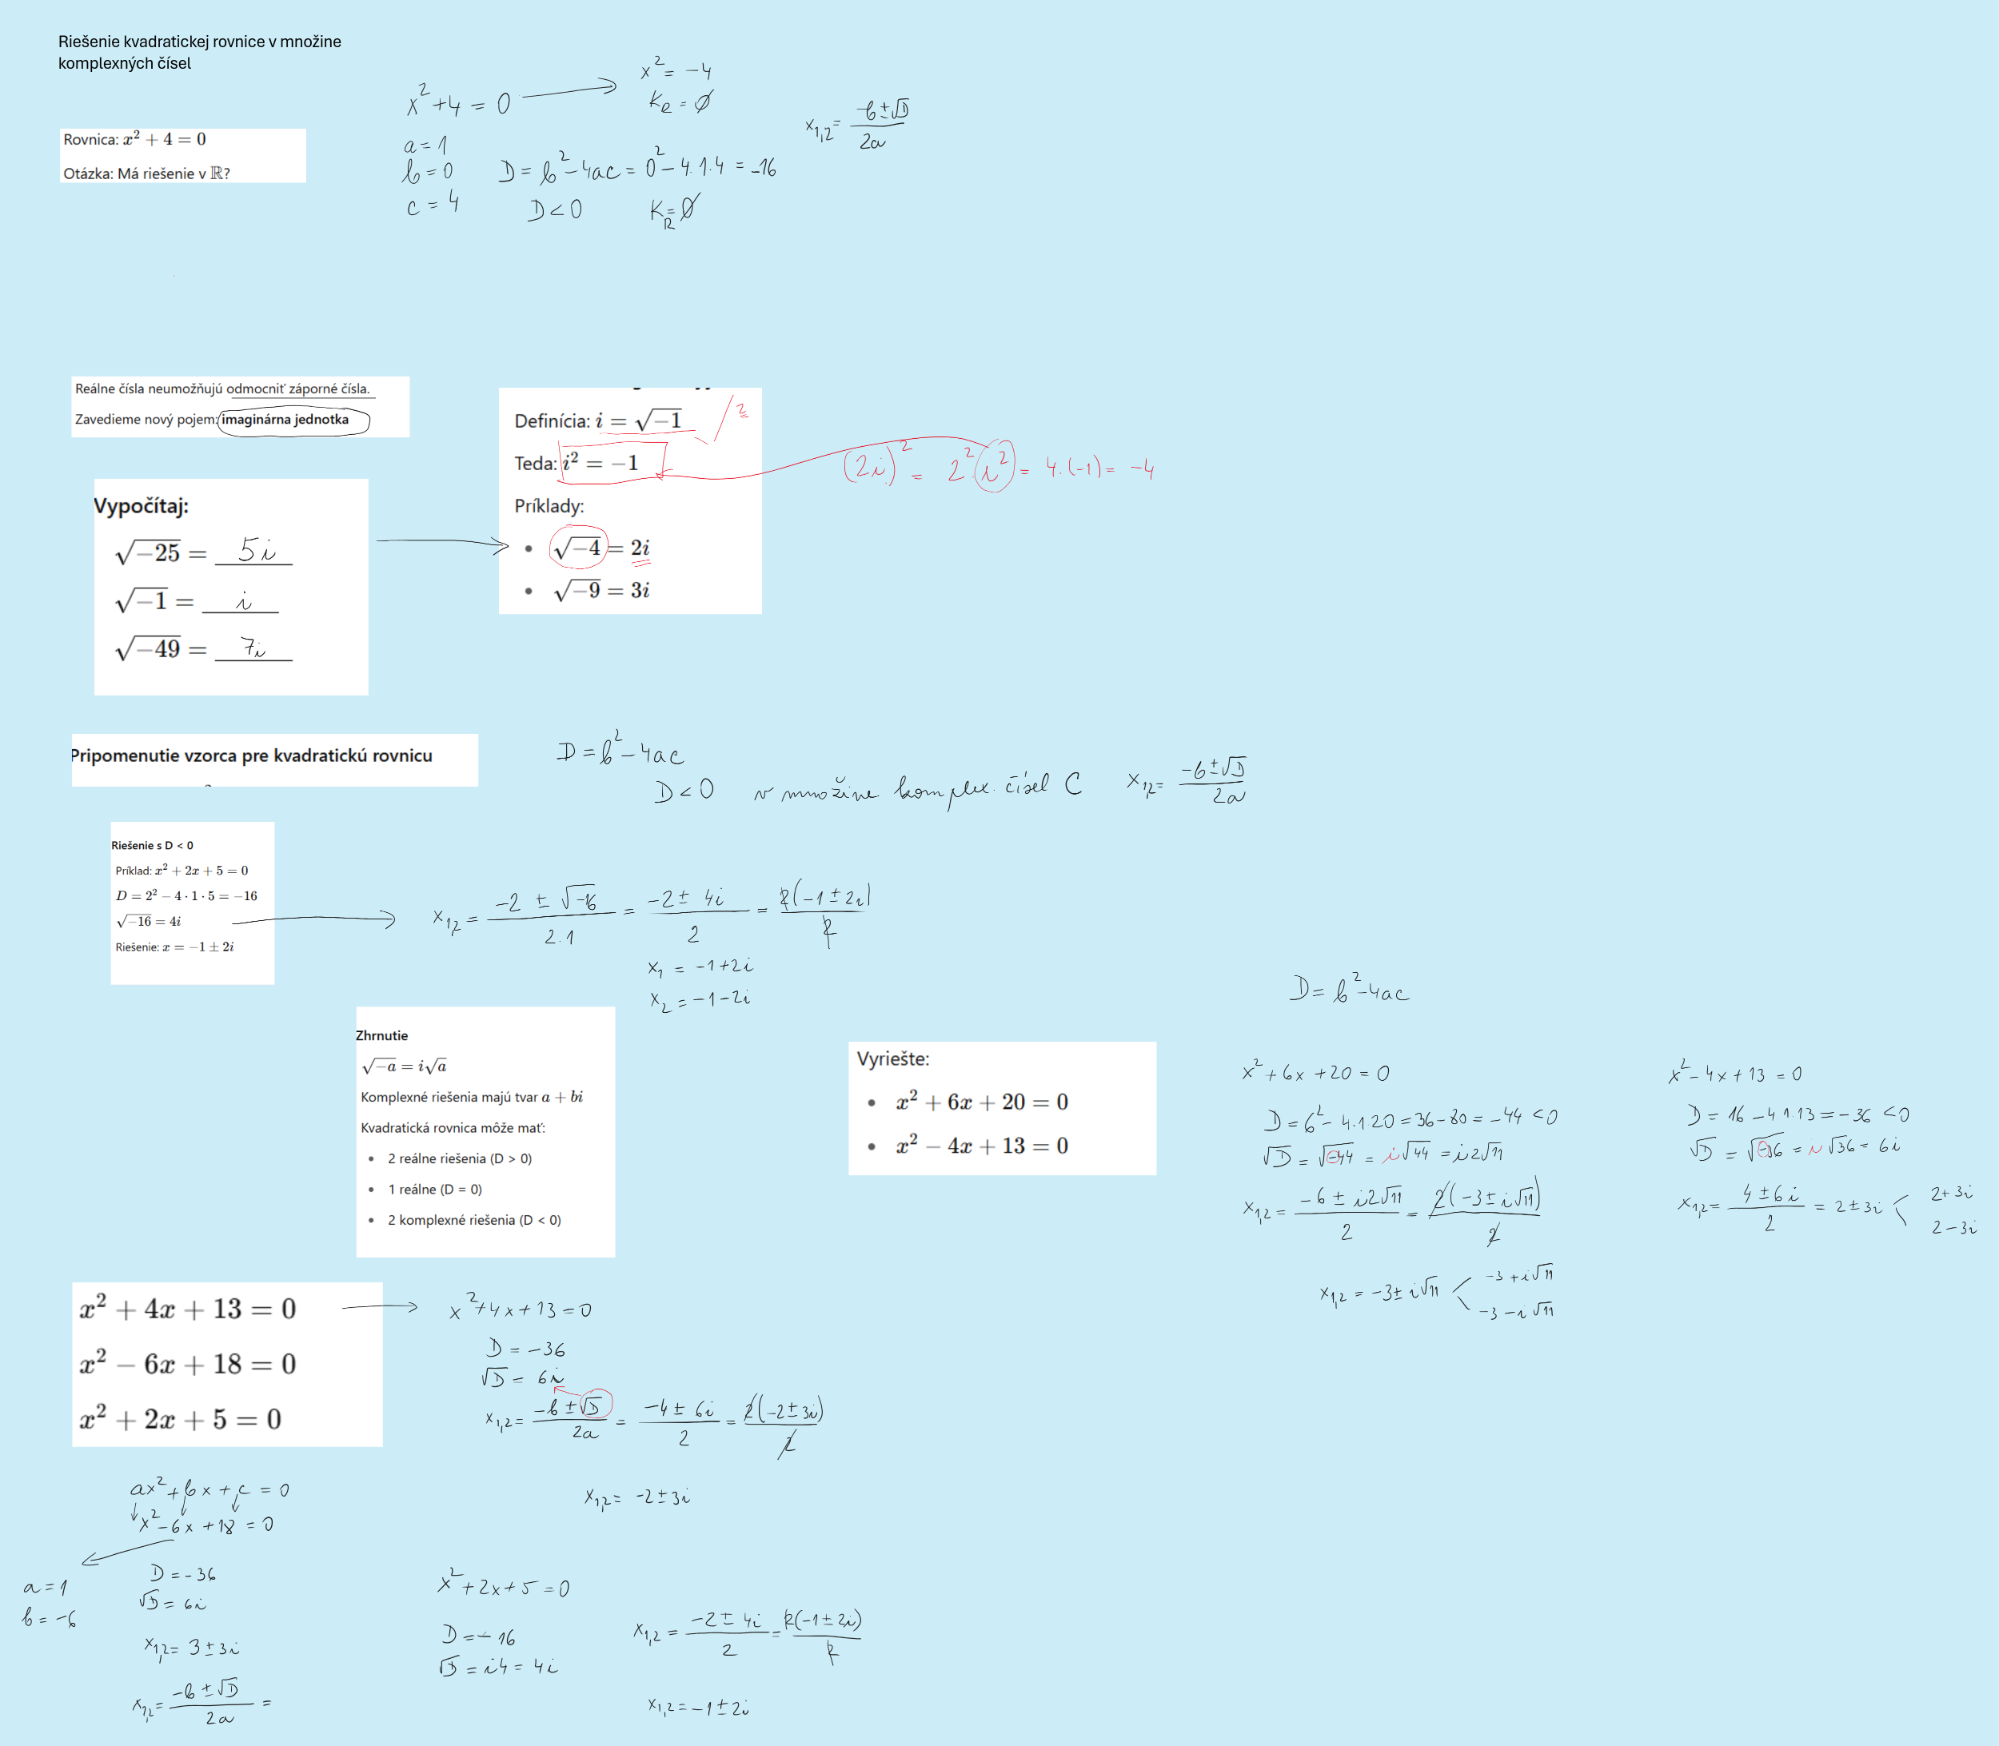 Riešenie kvadratickej rovnice v množine
komplexných čísel
x² + 4 = 0
x² = -4
K_R = ∅
Rovnica: x² + 4 = 0
Otázka: Má riešenie v ℝ?
a = 1
b = 0
c = 4
D = b² - 4ac = 0² - 4.1.4 = -16
D < 0
K_R = ∅
x₁,₂ = (-b ± √D) / 2a
Reálne čísla neumožňujú odmocniť záporné čísla.
Zavedieme nový pojem: imaginárna jednotka
Definícia: i = √-1 /²
Teda: i² = -1
(2i)² = 2² i² = 4.(-1) = -4
Príklady:
• √-4 = 2i
• √-9 = 3i
Vypočítaj:
√-25 = 5i
√-1 = i
√-49 = 7i
Pripomenutie vzorca pre kvadratickú rovnicu
D = b² - 4ac
D < 0 v množine komplex. čísel C x₁,₂ = (-b ± √D) / 2a
Riešenie s D < 0
Príklad: x² + 2x + 5 = 0
D = 2² - 4 · 1 · 5 = -16
√-16 = 4i
Riešenie: x = -1 ± 2i
x₁,₂ = (-2 ± √-16) / 2.1 = (-2 ± 4i) / 2 = 2(-1 ± 2i) / 2
x₁ = -1+2i
x₂ = -1-2i
Zhrnutie
√-a = i√a
Komplexné riešenia majú tvar a + bi
Kvadratická rovnica môže mať:
• 2 reálne riešenia (D > 0)
• 1 reálne (D = 0)
• 2 komplexné riešenia (D < 0)
Vyriešte:
• x² + 6x + 20 = 0
• x² - 4x + 13 = 0
D = b² - 4ac
x² + 6x + 20 = 0
D = 6² - 4.1.20 = 36 - 80 = -44 < 0
√D = √-44 = i√44 = i2√11
x₁,₂ = (-6 ± i2√11) / 2 = 2(-3 ± i√11) / 2
x₁,₂ = -3 ± i√11
-3 + i√11
-3 - i√11
x² - 4x + 13 = 0
D = 16 - 4.1.13 = -36 < 0
√D = √-36 = i√36 = 6i
x₁,₂ = (4 ± 6i) / 2 = 2 ± 3i
2 + 3i
2 - 3i
x² + 4x + 13 = 0
x² - 6x + 18 = 0
x² + 2x + 5 = 0
x² + 4x + 13 = 0
D = -36
√D = 6i
x₁,₂ = (-b ± √D) / 2a = (-4 ± 6i) / 2 = 2(-2 ± 3i) / 2
x₁,₂ = -2 ± 3i
ax² + bx + c = 0
x² - 6x + 18 = 0
a = 1
b = -6
D = -36
√D = 6i
x₁,₂ = 3 ± 3i
x₁,₂ = (-b ± √D) / 2a =
x² + 2x + 5 = 0
D = -16
√D = i4 = 4i
x₁,₂ = (-2 ± 4i) / 2 = 2(-1 ± 2i) / 2
x₁,₂ = -1 ± 2i